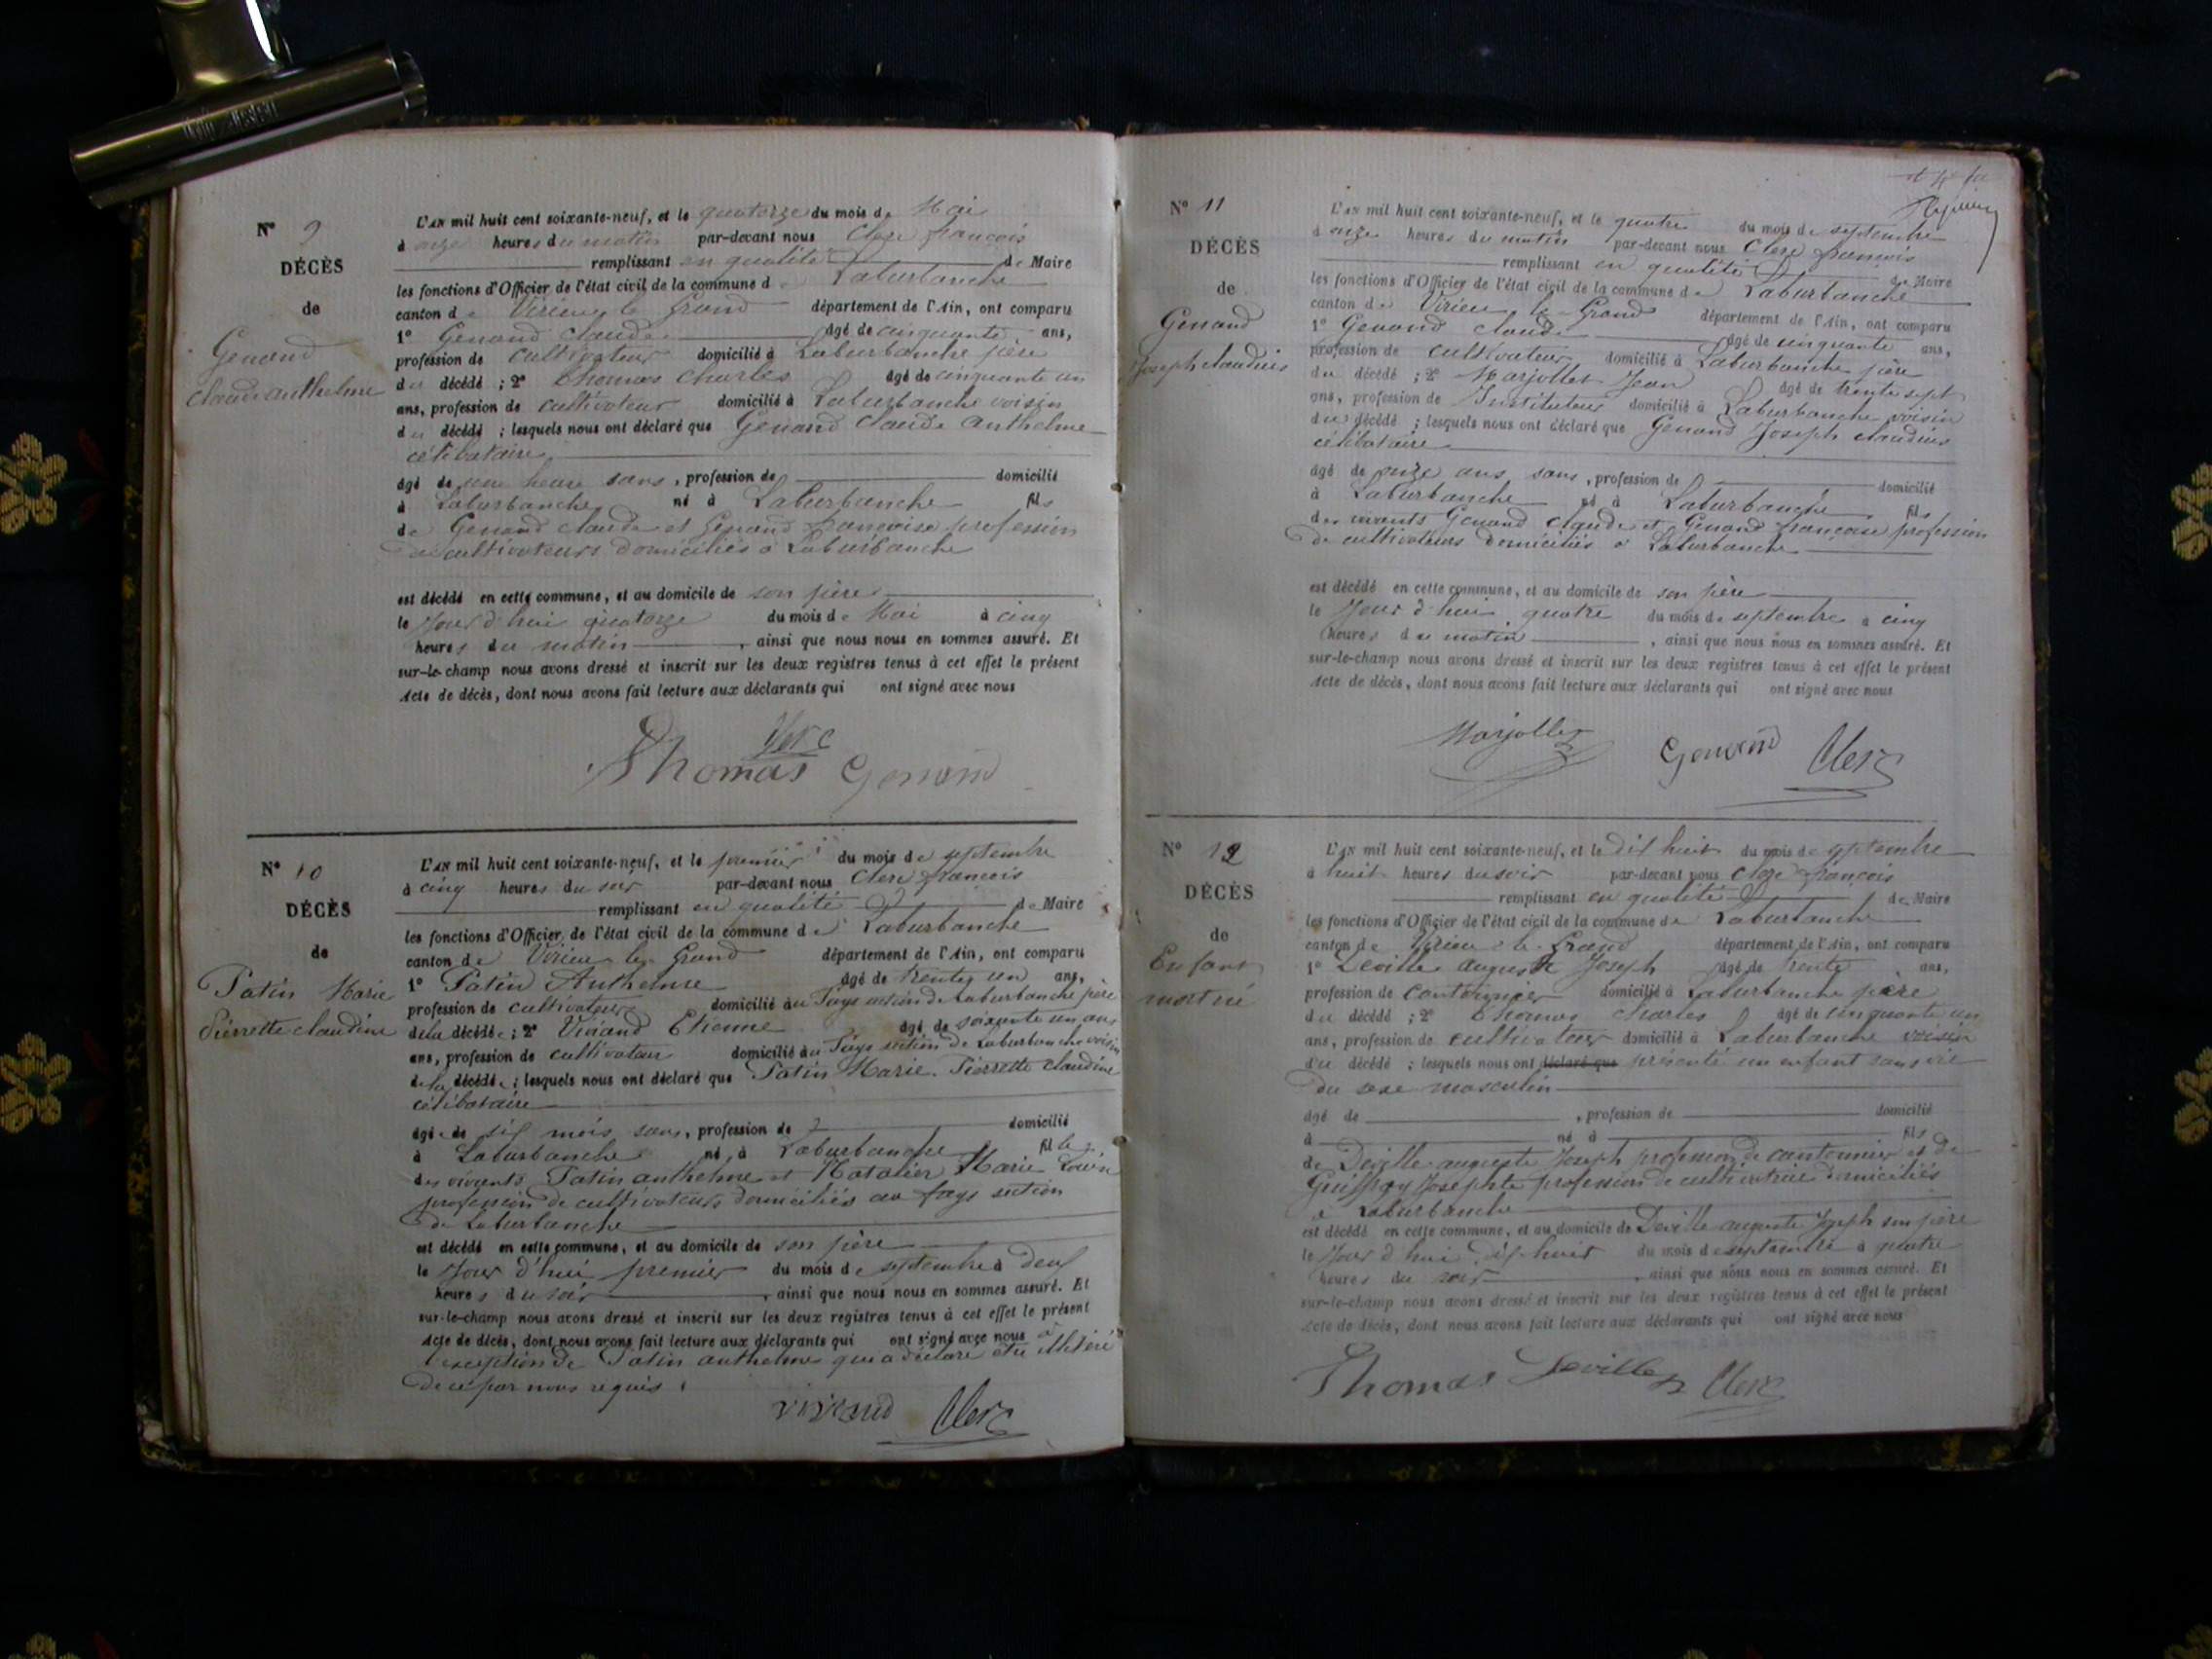 N° 9
DÉCÈS
de
Genand
Claude anthelme
L'AN mil huit cent soixante-neuf, et le quatorze du mois de Mai
à onze heures du matin par-devant nous Clerc françois
remplissant en qualité de Maire
les fonctions d'Officier de l'état civil de la commune de Laburbanche
canton de Virieu le Grand département de l'Ain, ont comparu
1° Genand Claude âgé de cinquante ans,
profession de cultivateur domicilié à Laburbanche père
du décédé ; 2° Thomas Charles âgé de cinquante un
ans, profession de cultivateur domicilié à Laburbanche voisin
du décédé ; lesquels nous ont déclaré que Genand Claude Anthelme
célibataire
âgé de une heure sans, profession de domicilié
à Laburbanche né à Laburbanche fils
de Genand Claude et Genand françoise profession
de cultivateurs domiciliés à Laburbanche
est décédé en cette commune, et au domicile de son père
le Jour d'hui quatorze du mois de Mai à cinq
heures du matin , ainsi que nous nous en sommes assuré. Et
sur-le-champ nous avons dressé et inscrit sur les deux registres tenus à cet effet le présent
Acte de décès, dont nous avons fait lecture aux déclarants qui ont signé avec nous
Clerc
Thomas Genand
N° 10
DÉCÈS
de
Patin Marie
Pierrette claudine
L'AN mil huit cent soixante-neuf, et le premier du mois de septembre
à cinq heures du soir par-devant nous Clerc françois
remplissant en qualité de Maire
les fonctions d'Officier de l'état civil de la commune de Laburbanche
canton de Virieu le Grand département de l'Ain, ont comparu
1° Patin Anthelme âgé de trente un ans,
profession de cultivateur domicilié au Fays section de Laburbanche père
de la décédée ; 2° Vivand Etienne âgé de soixante un ans
ans, profession de cultivateur domicilié au Fays section de Laburbanche voisin
de la décédée ; lesquels nous ont déclaré que Patin Marie Pierrette claudine
célibataire
âgée de six mois sans, profession de domicilié
à Laburbanche né à Laburbanche fille
des vivants Patin anthelme et Marie
profession de cultivateurs domiciliés au fays section
de Laburbanche
est décédé en cette commune, et au domicile de son père
le Jour d'hui premier du mois de septembre à deux
heures du soir , ainsi que nous nous en sommes assuré. Et
sur-le-champ nous avons dressé et inscrit sur les deux registres tenus à cet effet le présent
Acte de décès, dont nous avons fait lecture aux déclarants qui ont signé avec nous à
l'exception de Patin anthelme qui a déclaré être illitéré
de ce par nous requis
vivand Clerc
N° 11
DÉCÈS
de
Genand
Joseph claudius
L'AN mil huit cent soixante-neuf, et le quatre du mois de septembre
à onze heures du matin par-devant nous Clerc françois
remplissant en qualité de Maire
les fonctions d'Officier de l'état civil de la commune de Laburbanche
canton de Virieu le Grand département de l'Ain, ont comparu
1° Genand claude âgé de cinquante ans,
profession de cultivateur domicilié à Laburbanche père
du décédé ; 2° Marjollet Jean âgé de trente sept
ans, profession de Instituteur domicilié à Laburbanche voisin
du décédé ; lesquels nous ont déclaré que Genand Joseph claudius
célibataire
âgé de onze ans sans, profession de domicilié
à Laburbanche né à Laburbanche fils
des vivants Genand Claude et Genand françoise profession
de cultivateurs domiciliés à Laburbanche
est décédé en cette commune, et au domicile de son père
le Jour d'hui quatre du mois de septembre à cinq
heures du matin , ainsi que nous nous en sommes assuré. Et
sur-le-champ nous avons dressé et inscrit sur les deux registres tenus à cet effet le présent
Acte de décès, dont nous avons fait lecture aux déclarants qui ont signé avec nous
Marjollet Genand Clerc
N° 12
DÉCÈS
de
Enfant
mort né
L'AN mil huit cent soixante-neuf, et le dix huit du mois de septembre
à huit heures du soir par-devant nous Clerc françois
remplissant en qualité de Maire
les fonctions d'Officier de l'état civil de la commune de Laburbanche
canton de Virieu le Grand département de l'Ain, ont comparu
1° Deville auguste Joseph âgé de trente ans,
profession de cantonnier domicilié à Laburbanche père
du décédé ; 2° Thomas charles âgé de cinquante un
ans, profession de cultivateur domicilié à Laburbanche voisin
du décédé ; lesquels nous ont déclaré que présenté un enfant sans vie
du sexe masculin
âgé de , profession de domicilié
à né à fils
de Deville auguste Joseph profession de cantonnier et de
Josephte profession de cultivatrice domiciliés
à Laburbanche
est décédé en cette commune, et au domicile de Deville auguste Joseph son père
le Jour d'hui dix huit du mois de septembre à quatre
heures du soir , ainsi que nous nous en sommes assuré. Et
sur-le-champ nous avons dressé et inscrit sur les deux registres tenus à cet effet le présent
Acte de décès, dont nous avons fait lecture aux déclarants qui ont signé avec nous
Thomas Deville Clerc